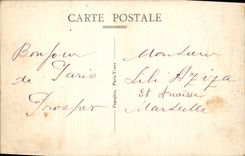 CARTE POSTALE
Bonjour
de Paris
Prosper
Monsieur
Lili Aziza
Marseille